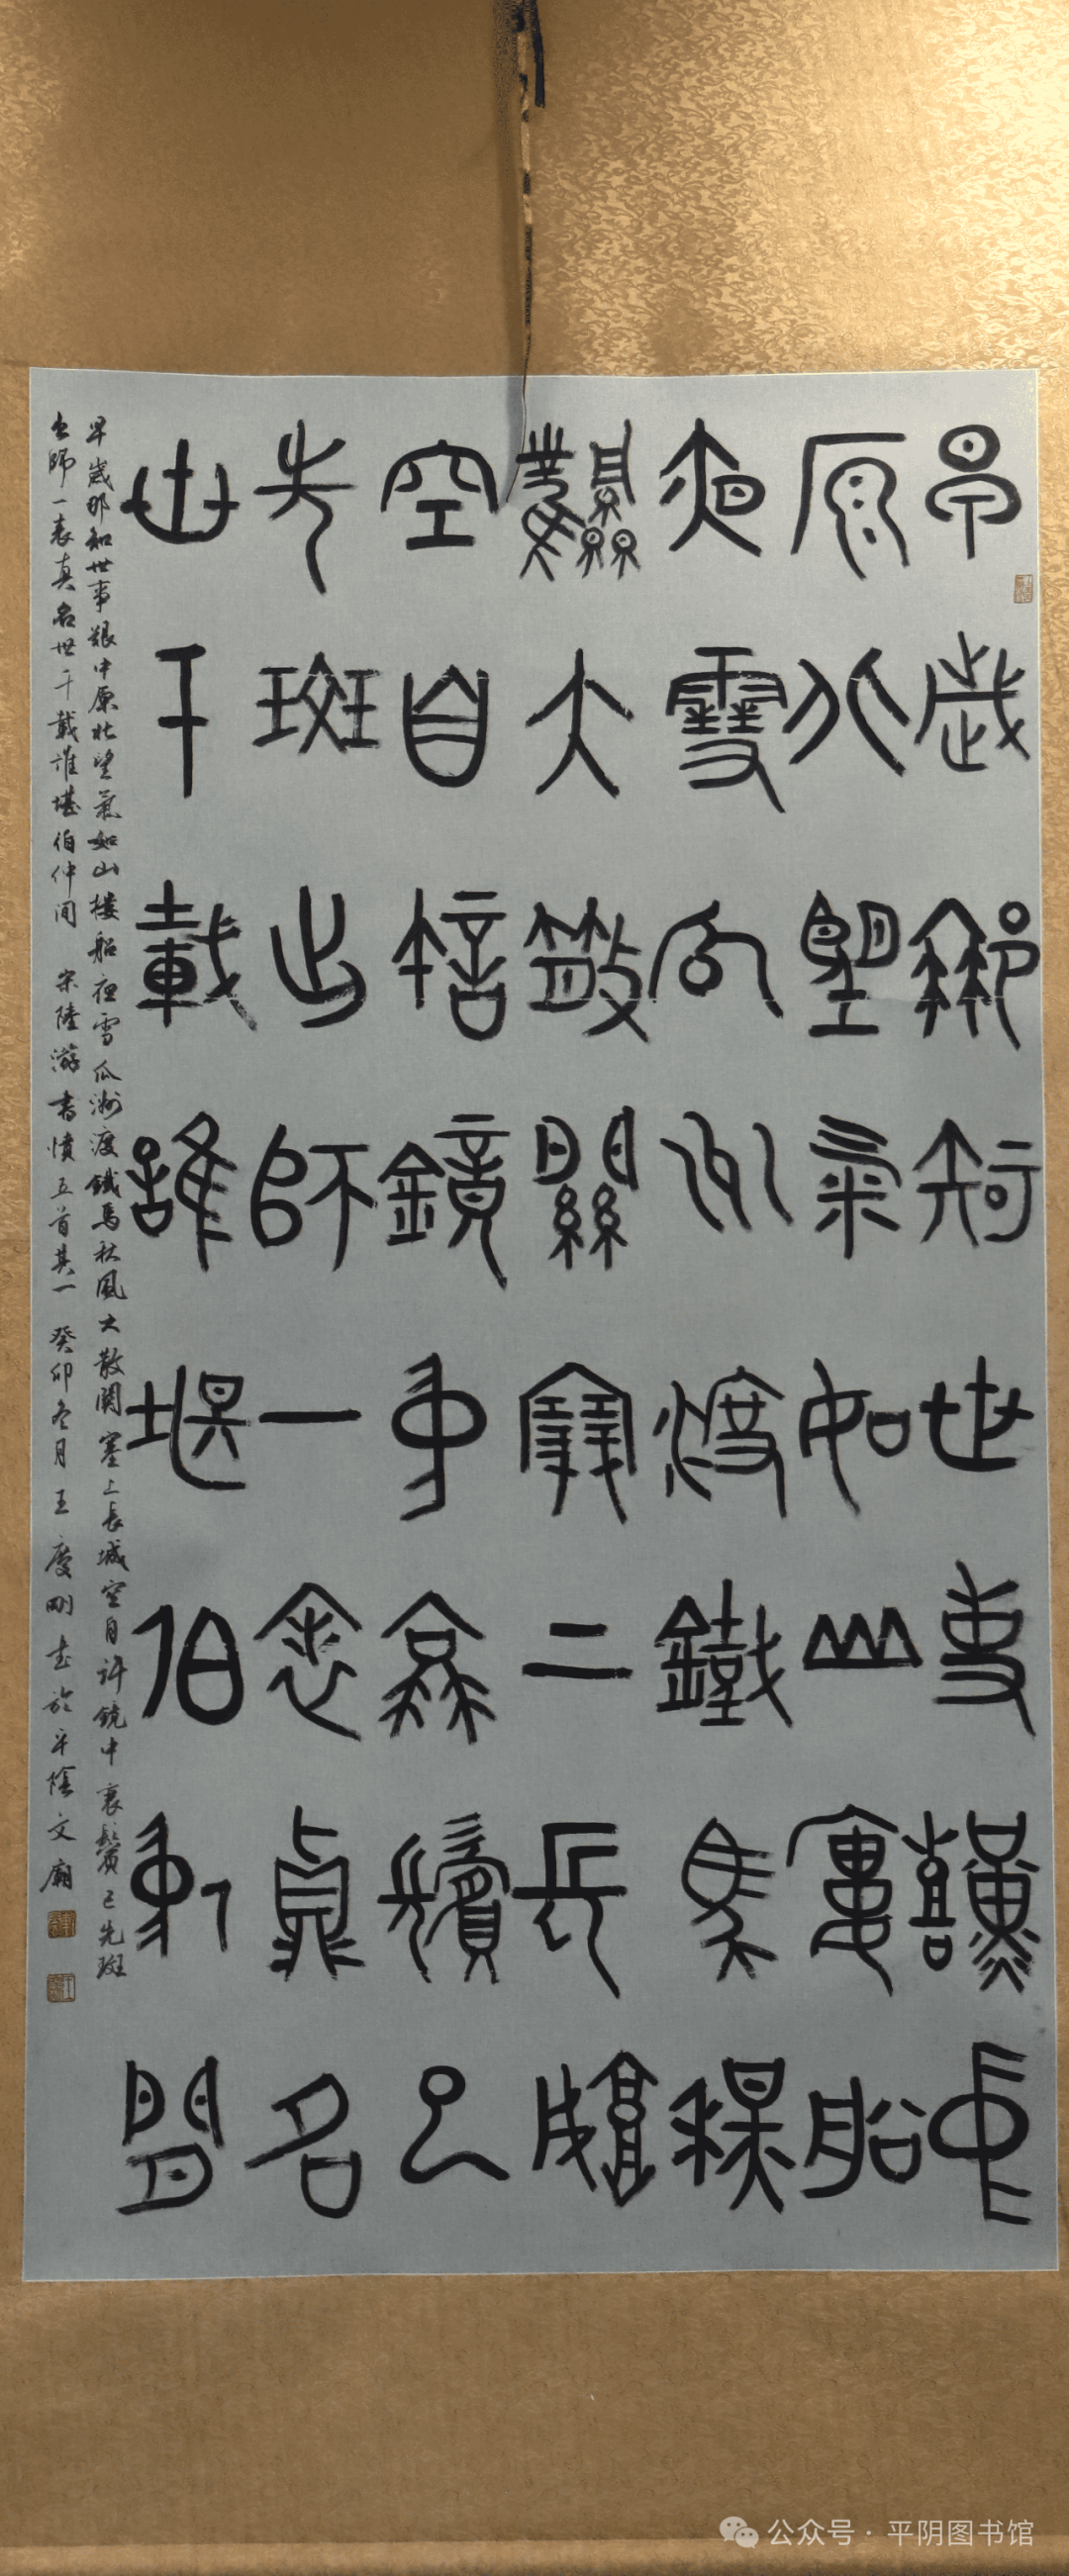 早歲那知世事艱中
原北望氣如山樓船
夜雪瓜洲渡鐵馬秋
風大散關塞上長城
空自許鏡中衰鬢已
先斑出師一表真名
世千載誰堪伯仲間
早歲那知世事艱中原北望氣如山樓船夜雪瓜洲渡鐵馬秋風大散關塞上長城空自許鏡中衰鬢已先斑
出師一表真名世千載誰堪伯仲間 宋陸游書憤五首其一 癸卯冬月王慶剛書於平陰文廟
公众号·平阴图书馆